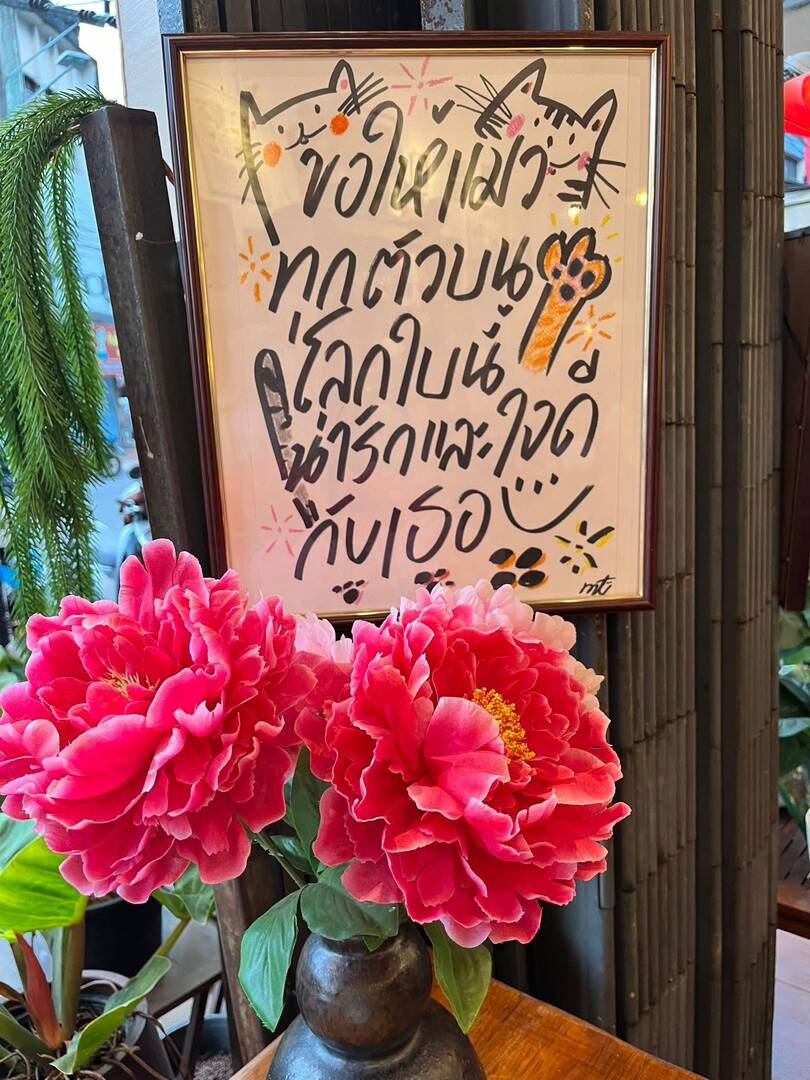 ขอให้แมว
ทุกตัวบน
โลกใบนี้
น่ารักและใจดี
กับเธอ
mt